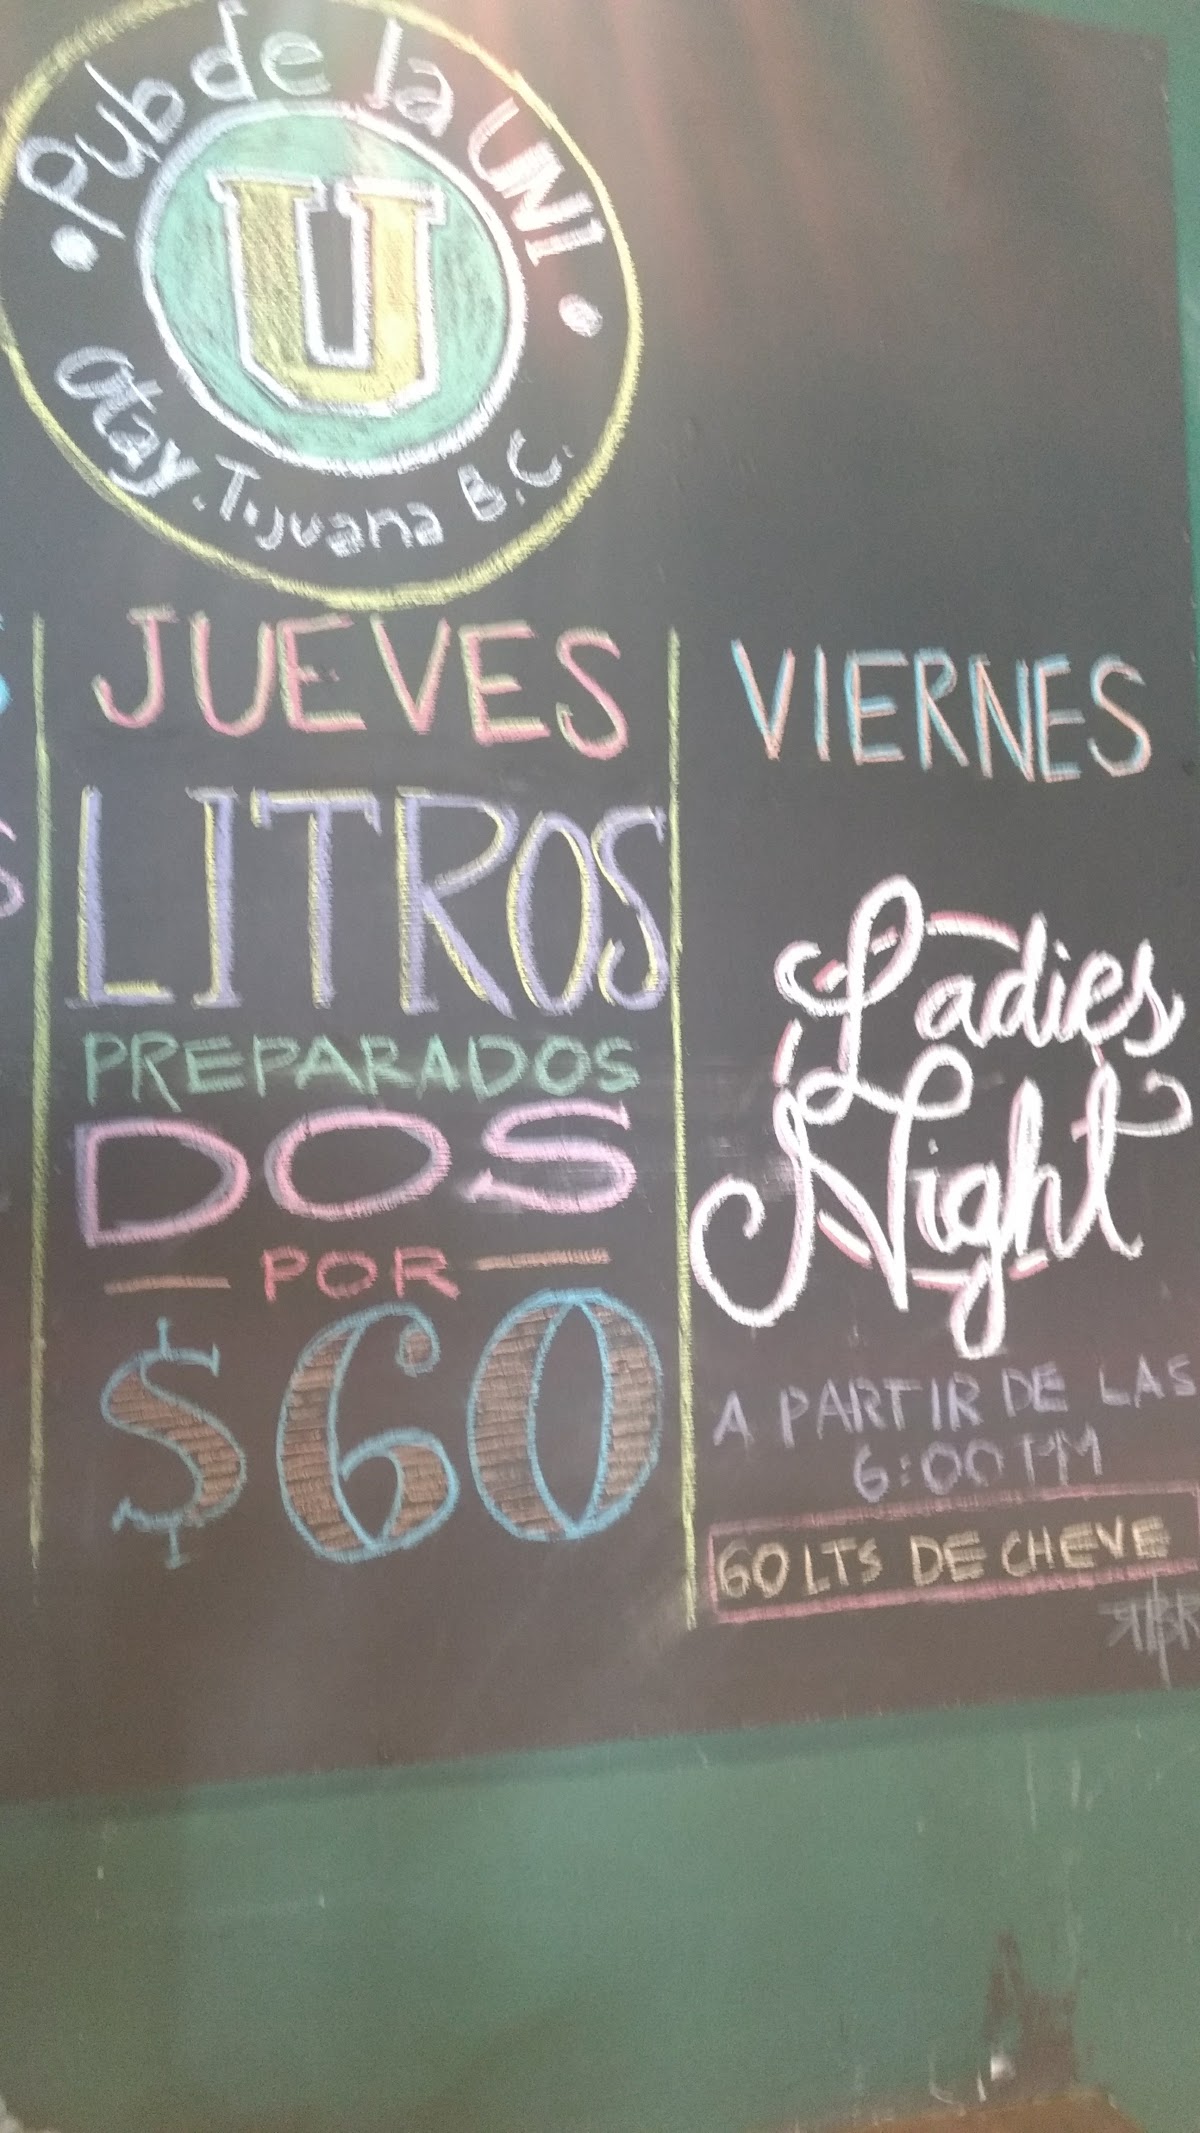 Pub de la UNI
U
Otay, Tijuana B.C.
JUEVES
LITROS
PREPARADOS
DOS
POR
$60
VIERNES
Ladies
Night
A PARTIR DE LAS
6:00 PM
60 LTS DE CHEVE